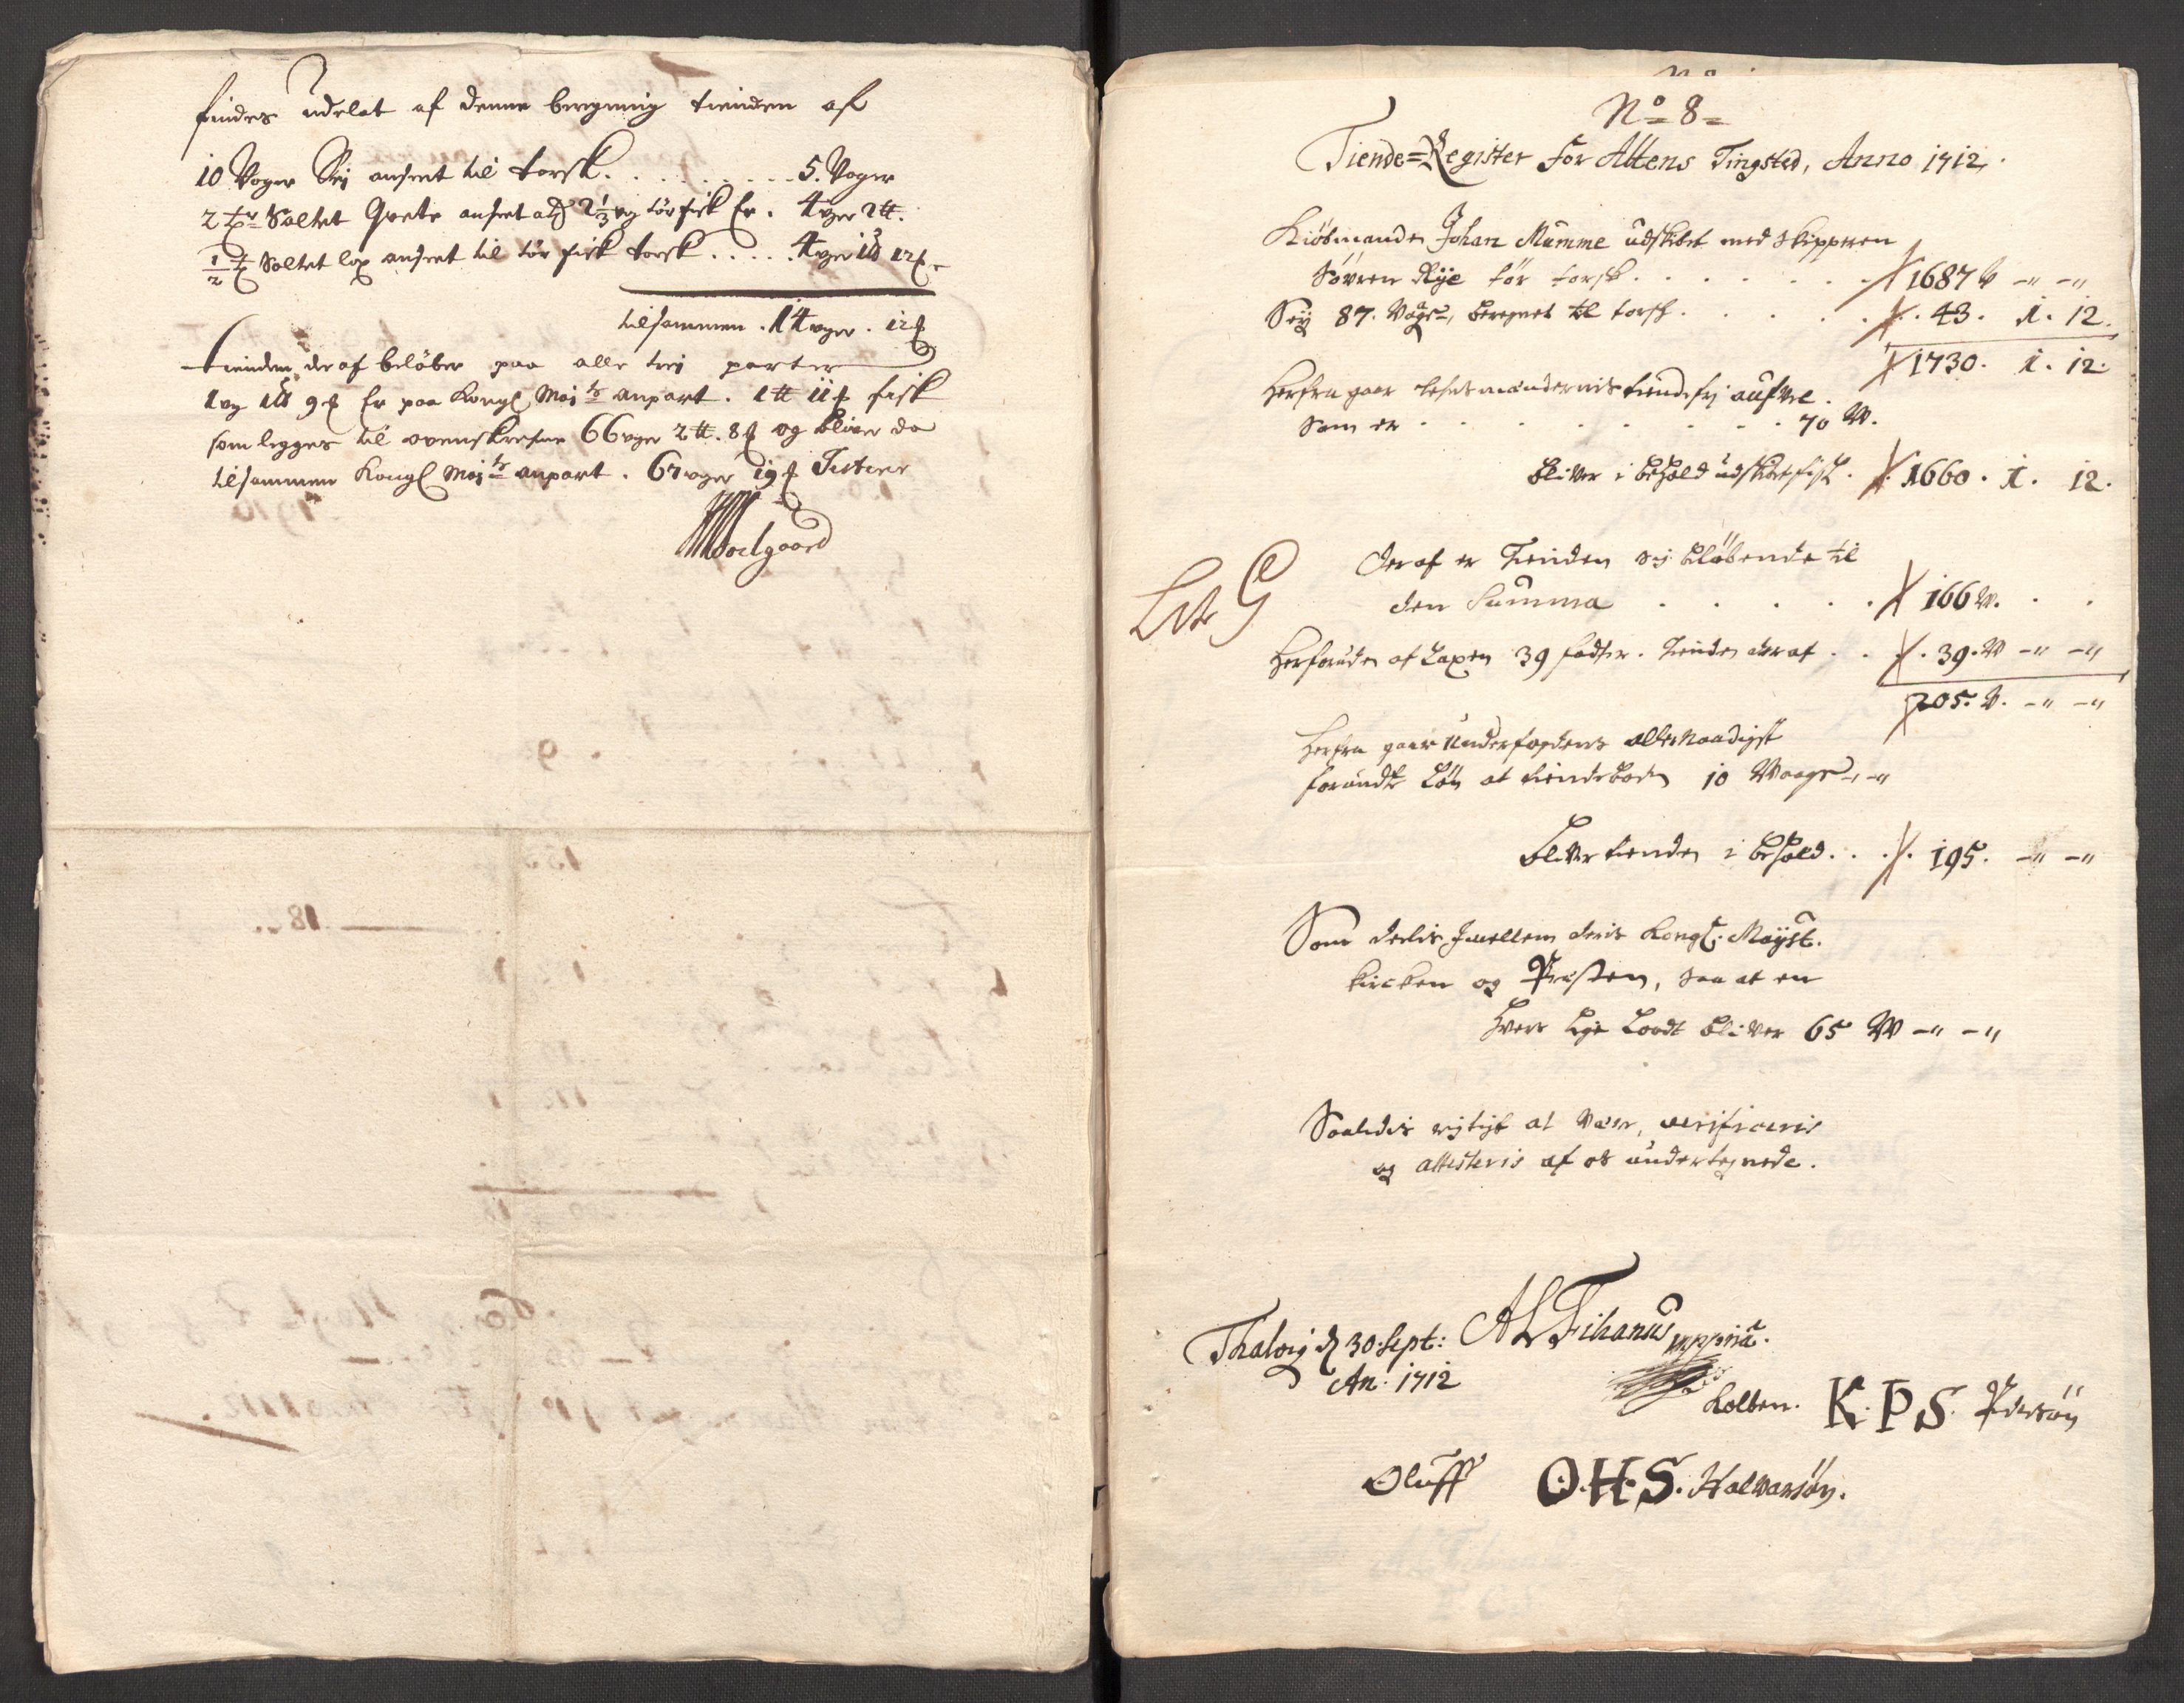 findes udelat af denne beregning tienden af
10 Voger Sej anseet til torsk . . . . . . . . . . 5. Voger
2 tr Saltet Qvete anseet at 2 1/3 vg tørfisk Er . 4 vger 2 tt.
1/2 t Saltet lax anseet til tør fisk torsk . . . . . 4 vger 1 12
tilsammen . 14 vger . 12
tienden deraf beløber paa alle trej parter
1 vg 1 9 Er paa Kongl May tz anpart . 1 tt 11 fisk
som legges til ovenskrefne 66 vger 2 tt. 8 og bliver da
tilsammen Kongl Maj tz anpart . 67 voger 19 Testerer
Soelgaard
No 8
Tiende=Register for Altens Tingsted, Anno 1712.
Kiöbmanden Johan Mumme udskibet med Skipperen
Sövren Rÿe tör torsk . . . . . . . 1687 W -" -"
Seÿ 87. Voger, beregnet til torsk . . . . . . 43. 1. 12.
1730. 1. 12.
Herfra gaar Lehnsmændernis tiendefrj aufvel.
Som er . . . . . . . . 70 W.
Bliver i behold udskibet fisk . 1660. 1. 12.
Lit G
Deraf er Tienden sig belöbende til
den Summa . . . . . 166 W. . .
Herforuden af Laxen 39 fadter. Tienden deraf . . . 39. W -" -"
205. W. -" -"
Herfra gaar Underfogdens allernaadigst
forundte Lön af tiendeboden 10 Waager -" -"
Bliver tienden i behold . . . 195. -" -"
Som deelis Imellem deris Kongl: Mayst.
kircken og Præsten, saa at en
hver lige Lodt bliver 65 W -" -"
Saaledis rigtigt at være, verificeris
og attesteris af os undertegnede.
Thalvig d 30. Sept: AL Filtranus mppria.
An. 1712
Kolben. K. P S. Pedersön
Oluff O. H. S. Halvorsön.